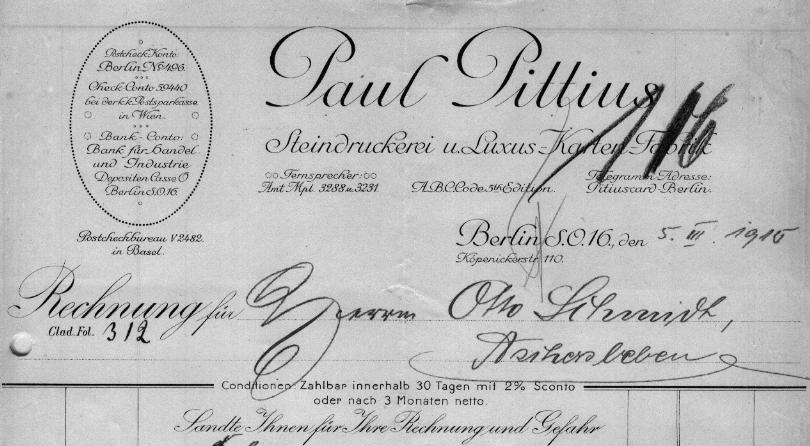 Postcheck-Konto:
Berlin № 496.
Check-Conto 59440
bei der k.k. Postsparkasse
in Wien.
Bank-Conto:
Bank für Handel
und Industrie
Depositen Casse O
Berlin S.O.16.
Postcheckbureau V 2482.
in Basel.
Paul Pittius
Steindruckerei u. Luxus-Karten-Fabrik
Fernsprecher:
Amt Mpl. 3288 u. 3231.
A.B.C. Code 5th Edition.
Telegramm-Adresse:
Pittiuscard-Berlin.
Berlin S.O.16., den 5. III. 1915
Köpenickerstr. 110.
Rechnung für Herrn Otto Schmidt,
Clad. Fol. 312
Aschersleben
Conditionen: Zahlbar innerhalb 30 Tagen mit 2% Sconto
oder nach 3 Monaten netto.
Sandte Ihnen für Ihre Rechnung und Gefahr